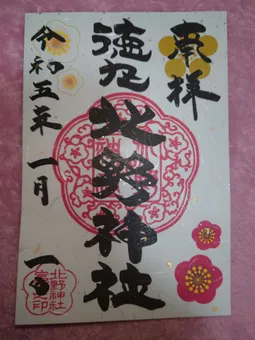 奉拝
徳丸
北野神社
令和五年 一月 一日
北野神社
宮司之印